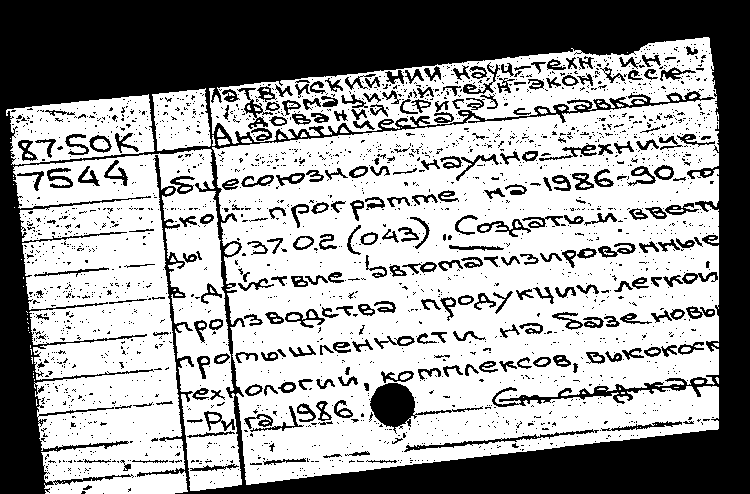 Латвийский НИИ науч-техн. ин-
формации и техн-экон. иссле-
дований (Рига).
87-50К
Аналитическая справка по
7544
общесоюзной научно-техниче-
ской программе на 1986-90 го-
ды 0.37.02 (043) „Создать и ввести
в действие автоматизированные
производства продукции легкой
промышленности на базе новы
технологий, комплексов, высокоск
-Рига, 1986.
См. след. карт